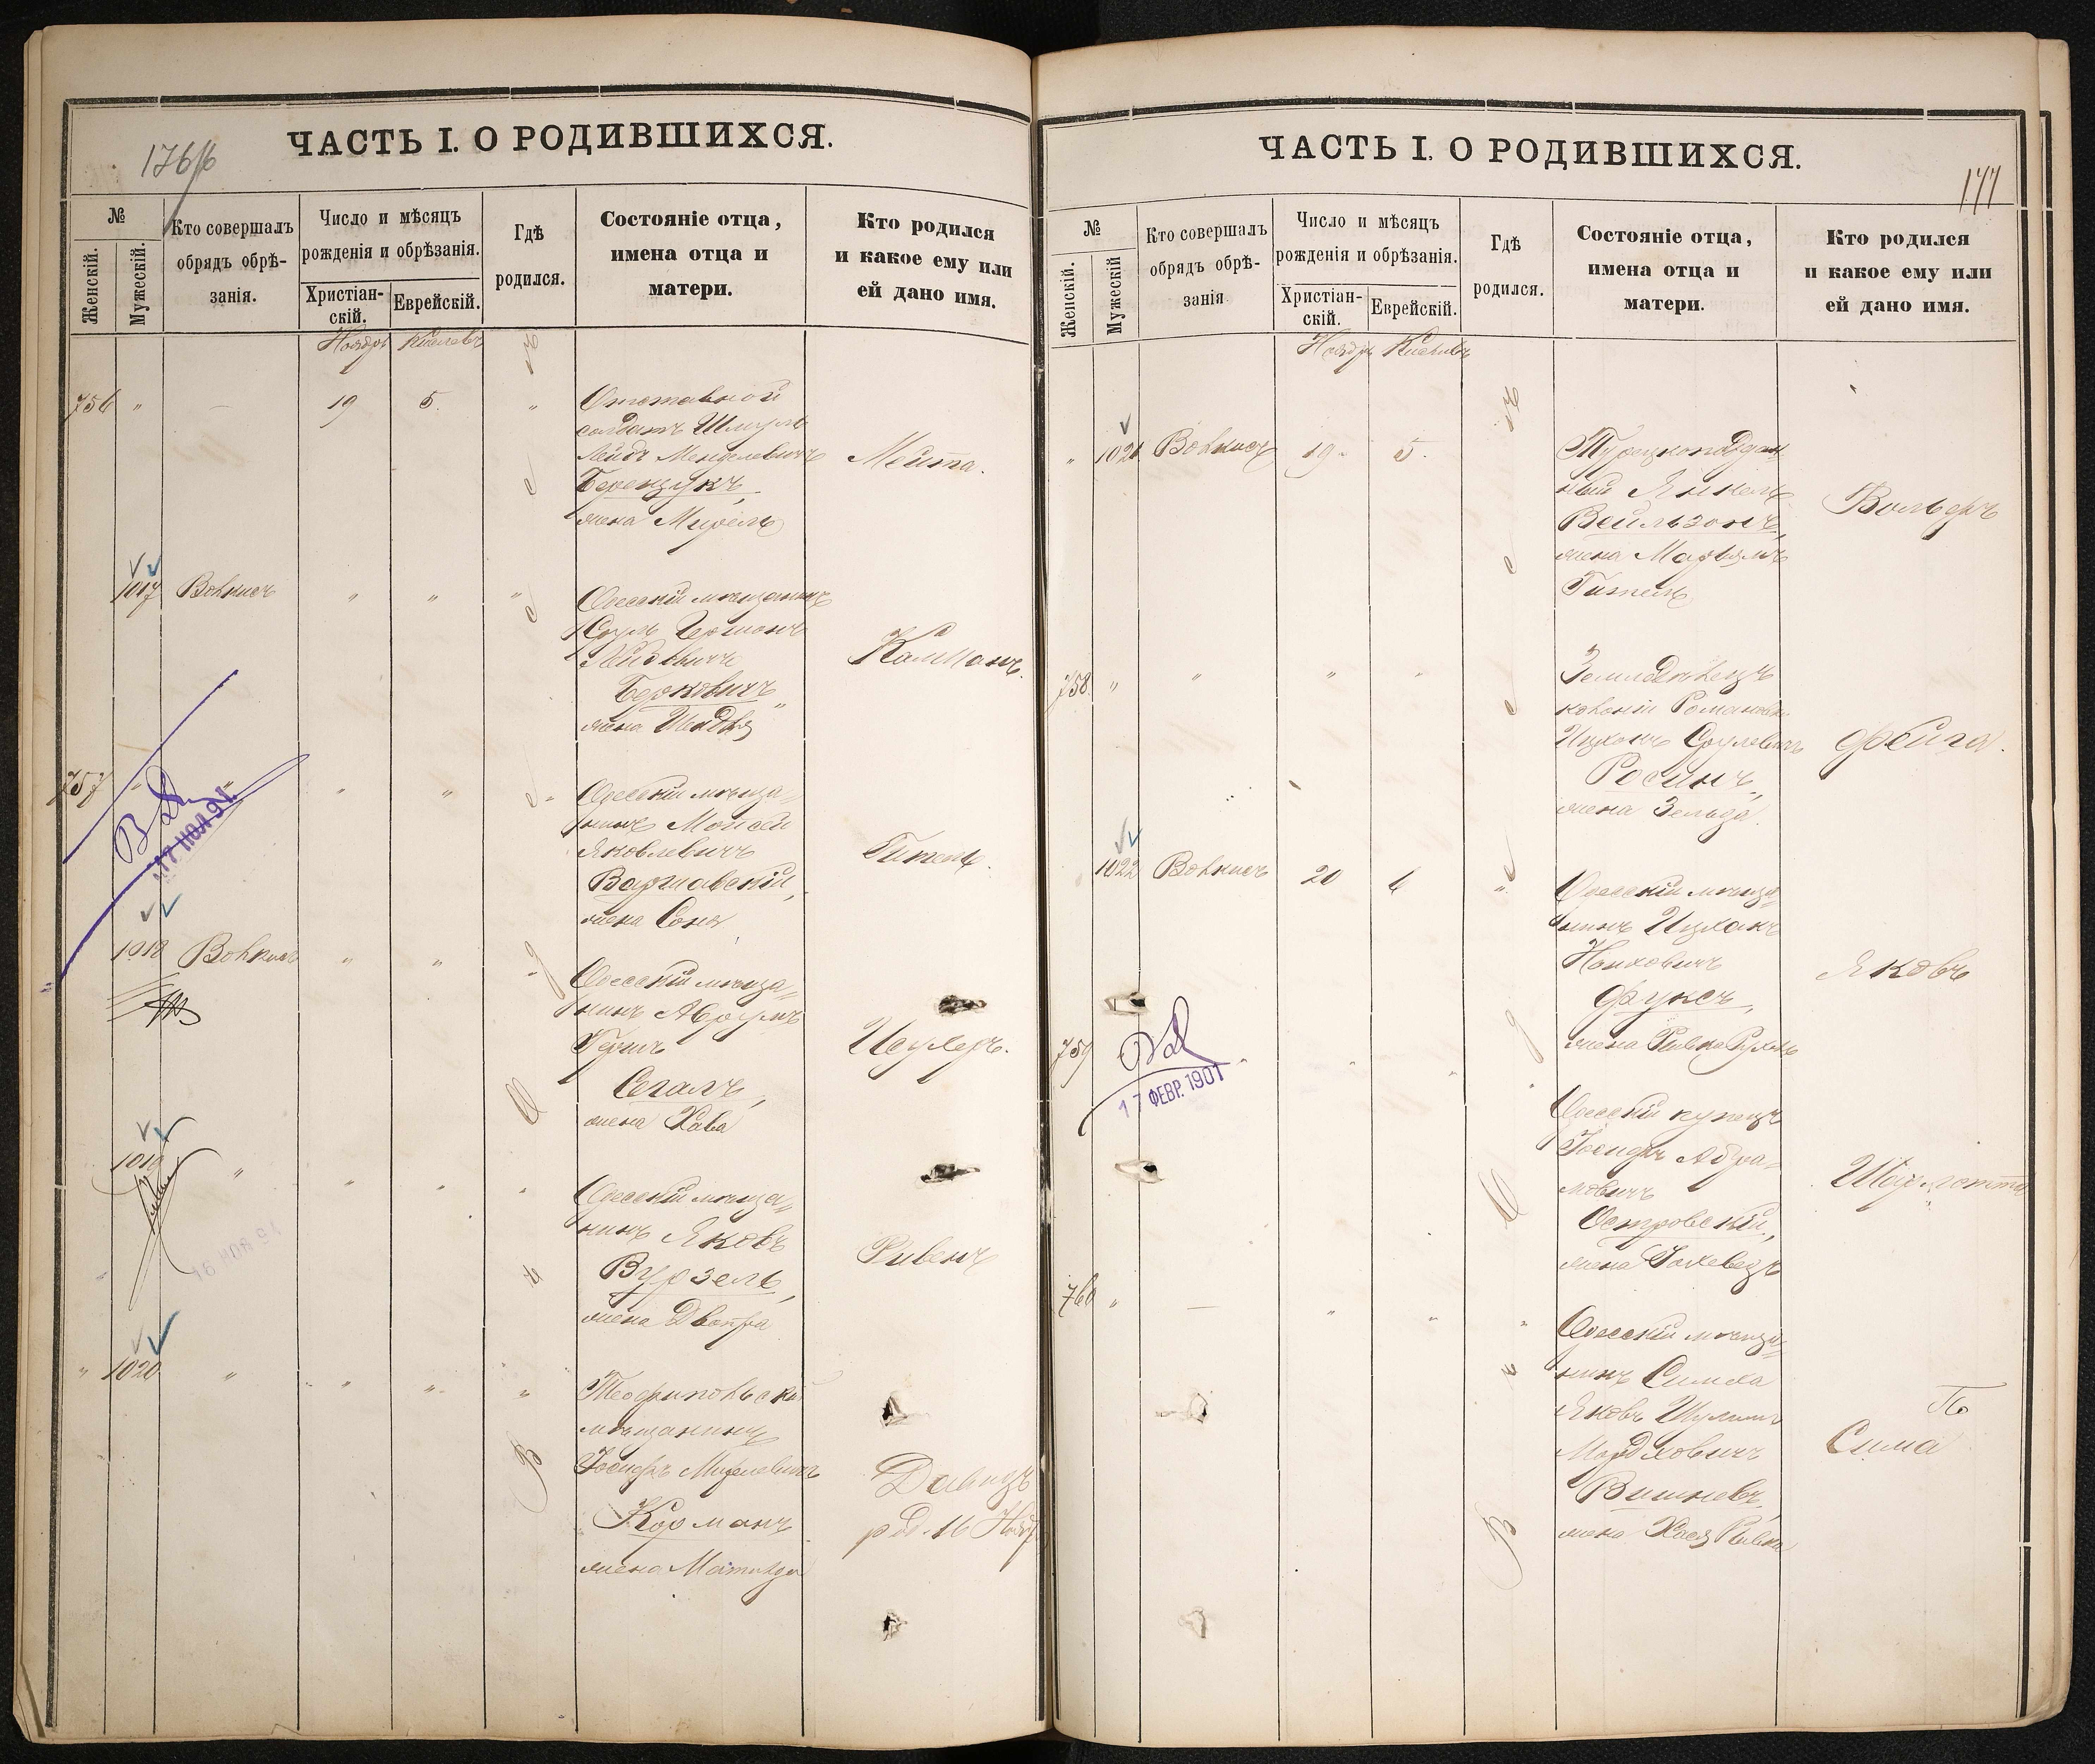 176/б
ЧАСТЬ I. О РОДИВШИХСЯ.
№
Женскій.
Мужескій.
Кто совершалъ
обрядъ обрѣ-
занія.
Число и мѣсяцъ
рожденія и обрѣзанія.
Христіан-
скій.
Еврейскій.
Гдѣ
родился.
Состояніе отца,
имена отца и
матери.
Кто родился
и какое ему или
ей дано имя.
Ноябрь Кислевъ
756 " — 19 5. "
Отставной
солдатъ Шмуль
Лейбъ Менделевичъ
Беренщукъ,
жена Мирель
Мейта.
1017 " " "
Одесскій мѣщанинъ
Сруль Гершонъ
Лейбовичъ
Берковичъ,
жена Шейдля
Калманъ.
757 " " "
Одесскій мѣща-
нинъ Мойсей
Яковлевичъ
Варшавскій,
жена Соня
Гитель.
17 НОЯ 9
1018 " "
Одесскій мѣща-
нинъ Аврумъ
Гершъ
Сегалъ,
жена Хава
1019 " " " "
Одесскій мѣща-
нинъ Яковъ
Вурзель,
жена Двойра
Рувенъ
" 1020 " " " "
Теофипольскій
мѣщанинъ
Іосифъ
Корманъ
жена Матильда
Давидъ
род. 16 Нояб
Одесса
ЧАСТЬ I. О РОДИВШИХСЯ.
177
№
Женскій.
Мужескій
Кто совершалъ
обрядъ обрѣ-
занія
Число и мѣсяцъ
рожденія и обрѣзанія.
Христіан-
скій.
Еврейскій.
Гдѣ
родился.
Состояніе отца,
имена отца и
матери.
Кто родился
и какое ему или
ей дано имя.
Ноябрь Кислевъ
" 1021 19 5.
Турецкоподдан
ный Янкель
Вейльзонъ,
жена Марьямъ
Гитель
Вольфъ
758. " " " "
Земледѣлецъ
колоніи Романовка
Ицхокъ Срулевичъ
Росинъ,
жена Зельда
Фейга.
1022 20 6 "
Одесскій мѣща-
нинъ Ицхакъ
Фуксъ,
жена Ривка Рухль
Яковъ
759 " " " "
17 ФЕВР. 1901
Одесскій купецъ
Іосифъ Абра-
мовичъ
Островскій,
жена
Шарлотта
760 " — " " "
Одесскій мѣща-
нинъ Симха
Яковъ Шулимъ
Мордховичъ
Вишневъ,
жена Хася Ривка
Сима